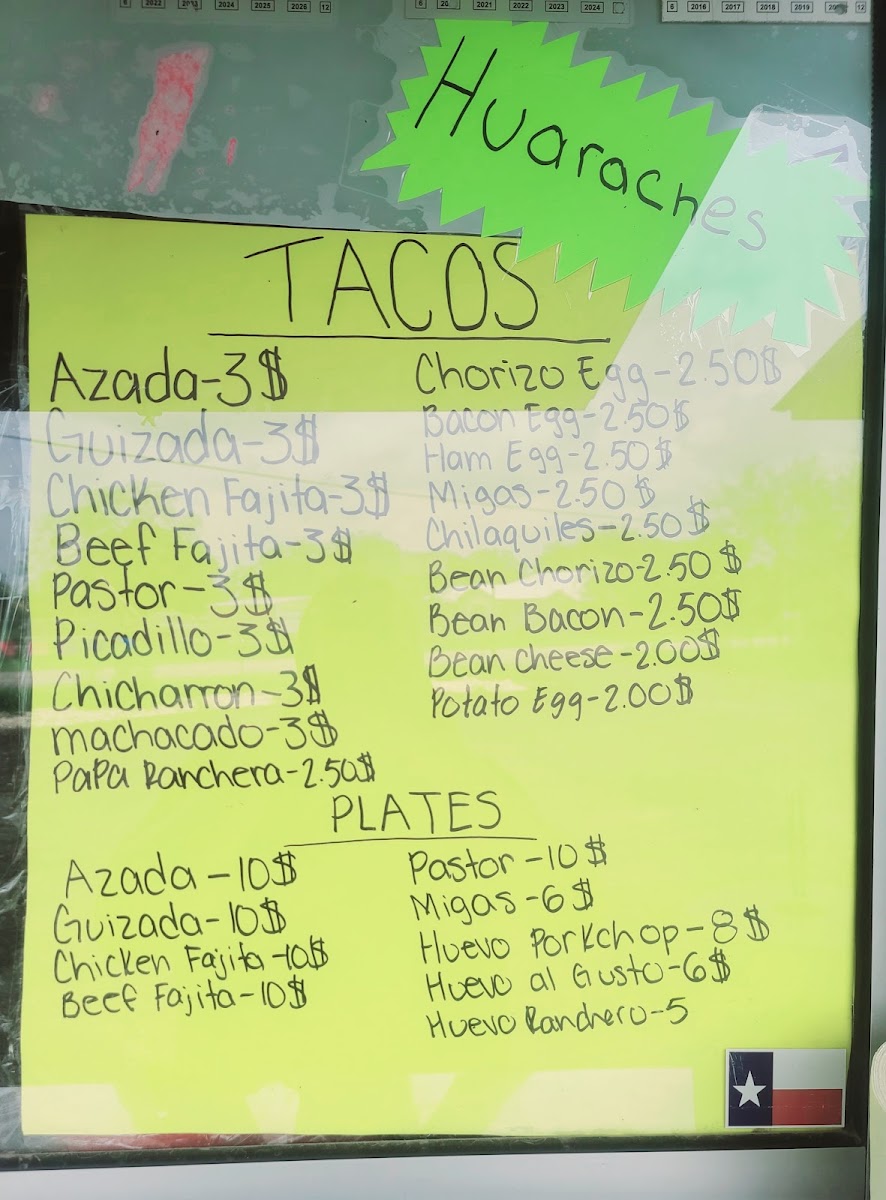 6 2022 2024 2025 2026 12
6 2021 2022 2023 2024
6 2016 2017 2018 2019 12
Huaraches
TACOS
Azada-3$
Guizada-3$
Chicken Fajita-3$
Beef Fajita-3$
Pastor-3$
Picadillo-3$
Chicharron-3$
machacado-3$
PaPa Ranchera-2.50$
Chorizo Egg-2.50$
Bacon Egg-2.50$
Ham Egg-2.50$
Migas-2.50$
Chilaquiles-2.50$
Bean Chorizo-2.50$
Bean Bacon-2.50$
Bean cheese-2.00$
Potato Egg-2.00$
PLATES
Azada-10$
Guizada-10$
Chicken Fajita-10$
Beef Fajita-10$
Pastor-10$
Migas-6$
Huevo Porkchop-8$
Huevo al Gusto-6$
Huevo Ranchero-5